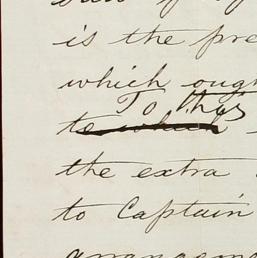 is the pre
which ough
To this
to which
the extra
to Captain